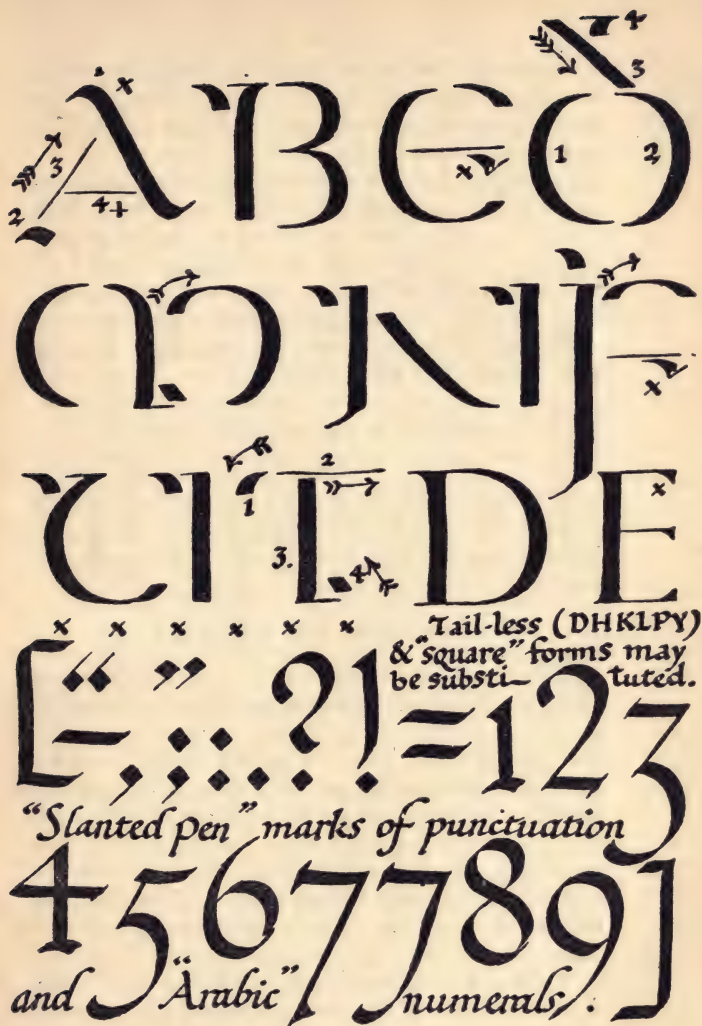 4
3
x
A B E D
3 1 2
4 x
2
M N F
x
2
U T D E x
1
3. 4
x x x x x x
Tail-less (DHKLPY)
& "square" forms may
be substi- tuted.
[ - “ , ” ; : . . ? ! = 1 2 3
“Slanted pen” marks of punctuation
4 5 6 7 7 8 9 ]
and “Arabic” numerals.